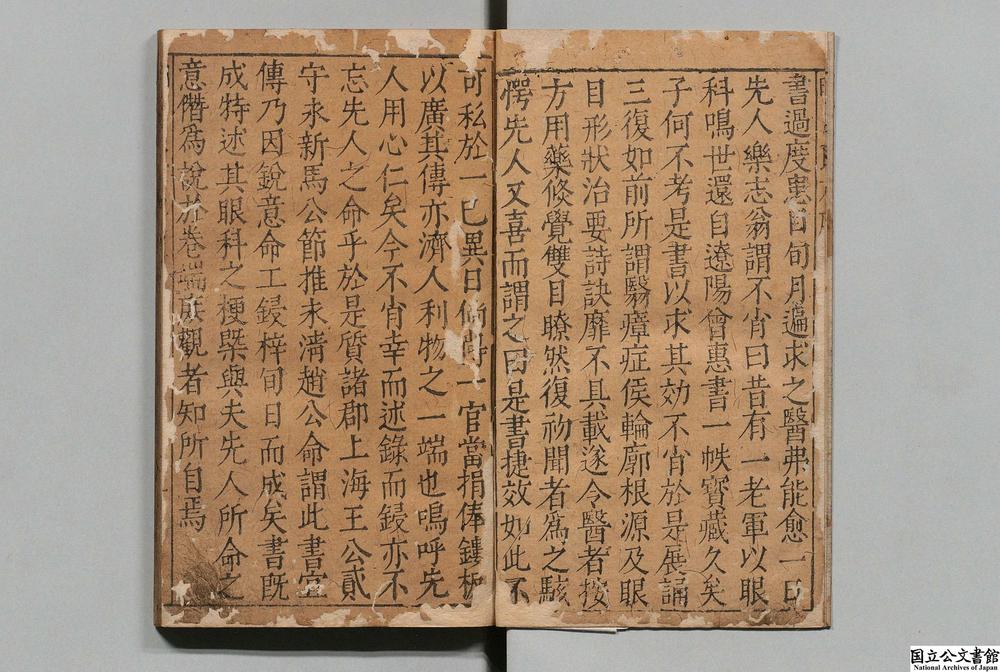 書過度患目旬月遍求之醫弗能愈一日
先人樂志翁謂不肖曰昔有一老軍以眼
科鳴世還自遼陽曾惠書一帙寶藏久矣
子何不考是書以求其効不肖於是展誦
三復如前所謂翳瘴症侯輪廓根源及眼
目形狀治要詩訣靡不具載遂令醫者按
方用藥倏覺雙目瞭然復初聞者為之駭
愕先人又喜而謂之曰是書捷效如此不
可私於一己異日倘一官當捐俸鏤板
以廣其傳亦濟人利物之一端也嗚呼先
人用心仁矣今不肖幸而述錄而鋟亦不
忘先人之命乎於是質諸郡上海王公貳
守永新馬公節推未清趙公命謂此書宜
傳乃因銳意命工鋟梓旬日而成矣書既
成特述其眼科之梗槩與夫先人所命之
意僭為說於卷端庶觀者知所自焉
国立公文書館
National Archives of Japan